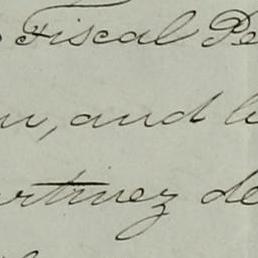 Fiscal Pe
, and l
rtinez de